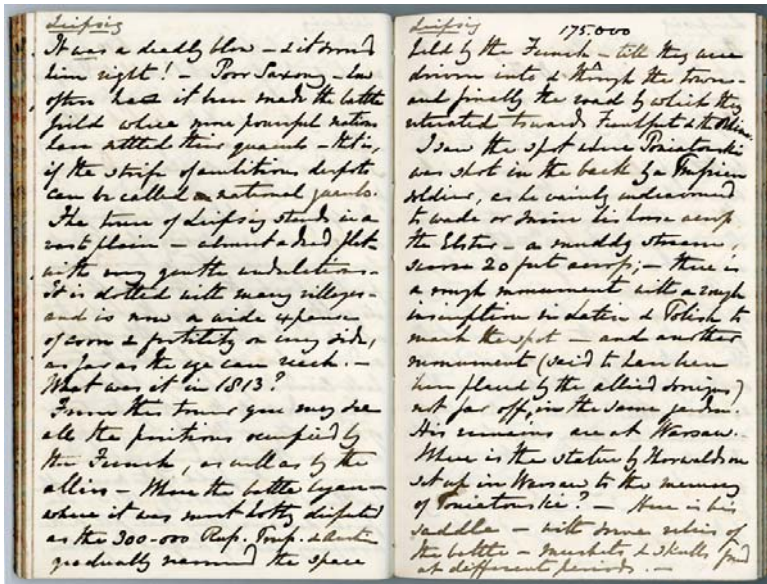 Leipsig
It was a deadly blow – & it served
him right! – Poor Saxony – how
often has it been made the battle
field where more powerful nations
have settled their quarrels – that is,
if the strife of ambitious despots
can be called a national quarrel.
The town of Leipsig stands in a
vast plain – almost a dead flat
with very gentle undulations –
It is dotted with many villages –
and is now a wide expanse
of corn & fertility on every side,
as far as the eye can reach. –
What was it in 1813?
From this tower you may see
all the positions occupied by
the French, as well as by the
allies – Where the battle began –
where it was most hotly disputed
as the 300-000 Rus. Prus. & Austri
gradually narrowed the space
Leipsig
175.000
held by the French – till they were
driven into & through the town –
and finally the road by which they
retreated towards Frankfurt & the Rhine.
I saw the spot where Poniatowski
was shot in the back by a Prussian
soldier, as he vainly endeavoured
to wade or swim his horse across
the Elster – a muddy stream,
some 20 feet across; – there is
a rough monument with a rough
inscription in Latin & Polish to
mark the spot – and another
monument (said to have been
been placed by the allied sovereigns)
not far off, in the same garden.
His remains are at Warsaw. –
Where is the statue by Thorwaldson
set up in Warsaw to the memory
of Poniatowskie? – Here is his
saddle – with some relics of
the battle – muskets & skulls found
at different periods. –